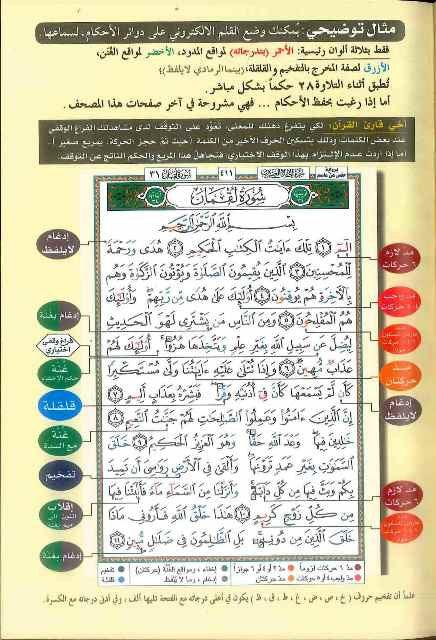 مثال توضيحي: يُمكنك وضع القلم الالكتروني على دوائر الأحكام، لسماعها.
فقط بثلاثة ألوان رئيسية: الأحمر (بتدرجاته) لمواقع المدود، الأخضر لمواقع الغُنن،
الأزرق لصفة المخرج بالتفخيم والقلقلة، (بينما الرمادي لايلفظ)
تُطبق أثناء التلاوة ٢٨ حُكماً بشكل مباشر.
أما إذا رغبت بحفظ الأحكام ... فهي مشروحة في آخر صفحات هذا المصحف.
أخي قارئ القرآن: لكي يتفرغ ذهنك للمعنى، تعوَّد على التوقف لدى مشاهدتك الفراغ الوقفي
عند بعض الكلمات، وذلك بتسكين الحرف الأخير من الكلمة (حيث تمّ حجز الحركة، بمربع صغير)
أما إذا أردت عدم الالتزام بهذا الوقف الاختياري، فتجاهل هذا المربع والحكم الناتج عن التوقف.
٤١١
سُورَةُ لُقْمَان
بِسْمِ اللَّهِ الرَّحْمَٰنِ الرَّحِيمِ
الٓمٓ ١ تِلْكَ ءَايَٰتُ الْكِتَٰبِ الْحَكِيمِ ٢ هُدًى وَرَحْمَةً
لِّلْمُحْسِنِينَ ٣ الَّذِينَ يُقِيمُونَ الصَّلَوٰةَ وَيُؤْتُونَ الزَّكَوٰةَ وَهُم
بِالْأَخِرَةِ هُمْ يُوقِنُونَ ٤ أُوْلَٰٓئِكَ عَلَىٰ هُدًى مِّن رَّبِّهِمْ وَأُوْلَٰٓئِكَ
هُمُ الْمُفْلِحُونَ ٥ وَمِنَ النَّاسِ مَن يَشْتَرِي لَهْوَ الْحَدِيثِ
لِيُضِلَّ عَن سَبِيلِ اللَّهِ بِغَيْرِ عِلْمٍ وَيَتَّخِذَهَا هُزُوًا أُوْلَٰٓئِكَ لَهُمْ
عَذَابٌ مُّهِينٌ ٦ وَإِذَا تُتْلَىٰ عَلَيْهِ ءَايَٰتُنَا وَلَّىٰ مُسْتَكْبِرًا
كَأَن لَّمْ يَسْمَعْهَا كَأَنَّ فِيٓ أُذُنَيْهِ وَقْرًا فَبَشِّرْهُ بِعَذَابٍ أَلِيمٍ ٧
إِنَّ الَّذِينَ ءَامَنُوا وَعَمِلُوا الصَّٰلِحَٰتِ لَهُمْ جَنَّٰتُ النَّعِيمِ ٨
خَٰلِدِينَ فِيهَا وَعْدَ اللَّهِ حَقًّا وَهُوَ الْعَزِيزُ الْحَكِيمُ ٩ خَلَقَ
السَّمَٰوَٰتِ بِغَيْرِ عَمَدٍ تَرَوْنَهَا وَأَلْقَىٰ فِي الْأَرْضِ رَوَٰسِيَ أَن تَمِيدَ
بِكُمْ وَبَثَّ فِيهَا مِن كُلِّ دَآبَّةٍ وَأَنزَلْنَا مِنَ السَّمَآءِ مَآءً فَأَنۢبَتْنَا فِيهَا
مِن كُلِّ زَوْجٍ كَرِيمٍ ١٠ هَٰذَا خَلْقُ اللَّهِ فَأَرُونِي مَاذَا
خَلَقَ الَّذِينَ مِن دُونِهِ بَلِ الظَّٰلِمُونَ فِي ضَلَٰلٍ مُّبِينٍ ١١
مد لازم
٦ حركات
مد
حركتان
إدغام
لايلفظ
مد لازم
٦ حركات
إدغام
لايلفظ
إدغام بغنة
فراغ وقفي
اختياري
غُنّة
قلقلة
غُنّة
مع الشدة
تفخيم
إقلاب
إدغام بغنة
علماً أن تفخيم حروف (خ ، ص ، ض ، غ ، ط ، ق ، ظ) يكون في أعلى درجاته مع الفتحة تليها ألف ، وفي أدنى درجاته مع الكسرة.